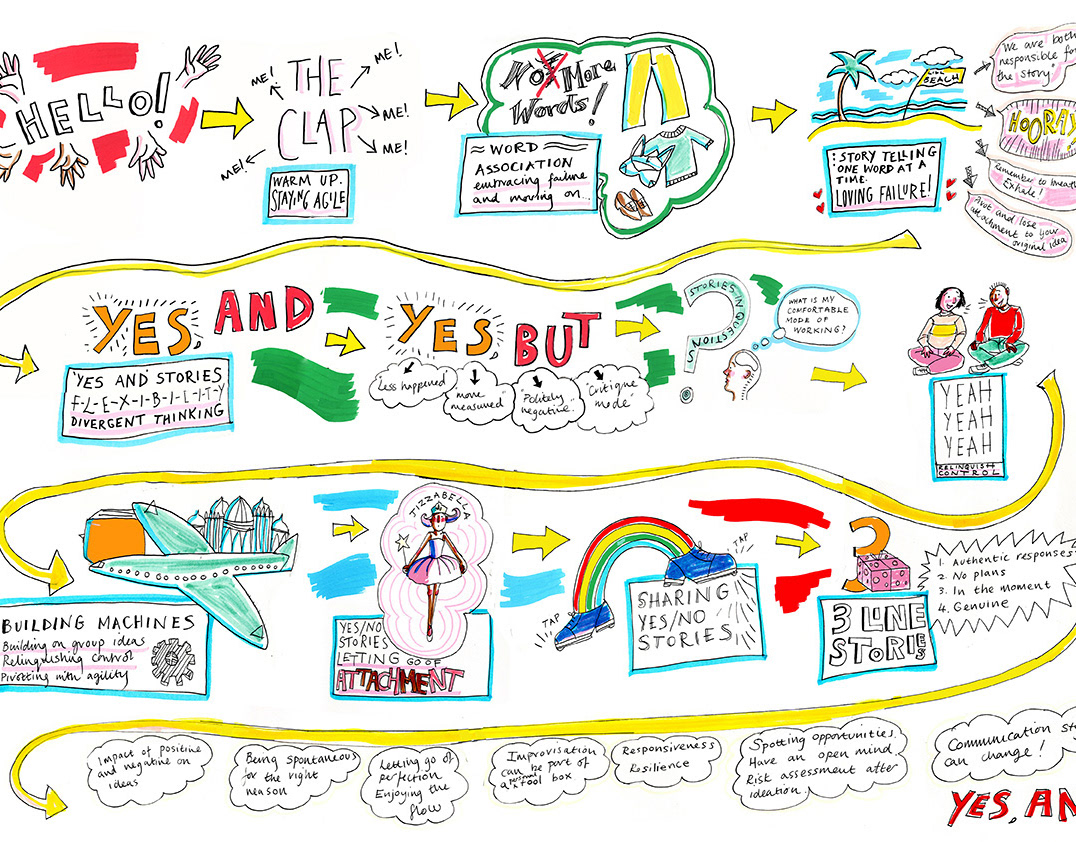 HELLO!
THE
CLAP
ME!
ME!
ME!
ME!
ME!
WARM UP.
STAYING AGILE
No More
Words!
WORD
ASSOCIATION
embracing failure
and moving on...
BEACH
: STORY TELLING
ONE WORD AT A
TIME.
LOVING FAILURE!
"We are both
responsible for
the story"
HOORAY
Remember to breathe
Exhale!
Pivot and lose your
attachment to your
original idea
YES, AND
'YES AND' STORIES
F-L-E-X-I-B-I-L-I-T-Y
DIVERGENT THINKING
YES, BUT
'Less happened'
'more
measured'
'Politely
negative'..
'Critique
mode'
STORIES IN QUESTIONS
WHAT IS MY
COMFORTABLE
MODE OF
WORKING?
YEAH
YEAH
YEAH
RELINQUISH
CONTROL
BUILDING MACHINES
Building on group ideas
Relinquishing control
Pivotting with agility
TIZZABELLA
YES/NO
STORIES
LETTING GO OF
ATTACHMENT
TAP
TAP
SHARING
YES/NO
STORIES
3
3 LINE
STORIES
1. Authentic responses
2. No plans
3. In the moment
4. Genuine
Impact of positive
and negative on
ideas
Being spontaneous
for the right
reason
Letting go of
perfection
Enjoying the
flow
Improvisation
can be part of
a personal tool box
Responsiveness
Resilience
Spotting opportunities
Have an open mind
Risk assessment after
ideation.
Communication
can change!
YES, AN